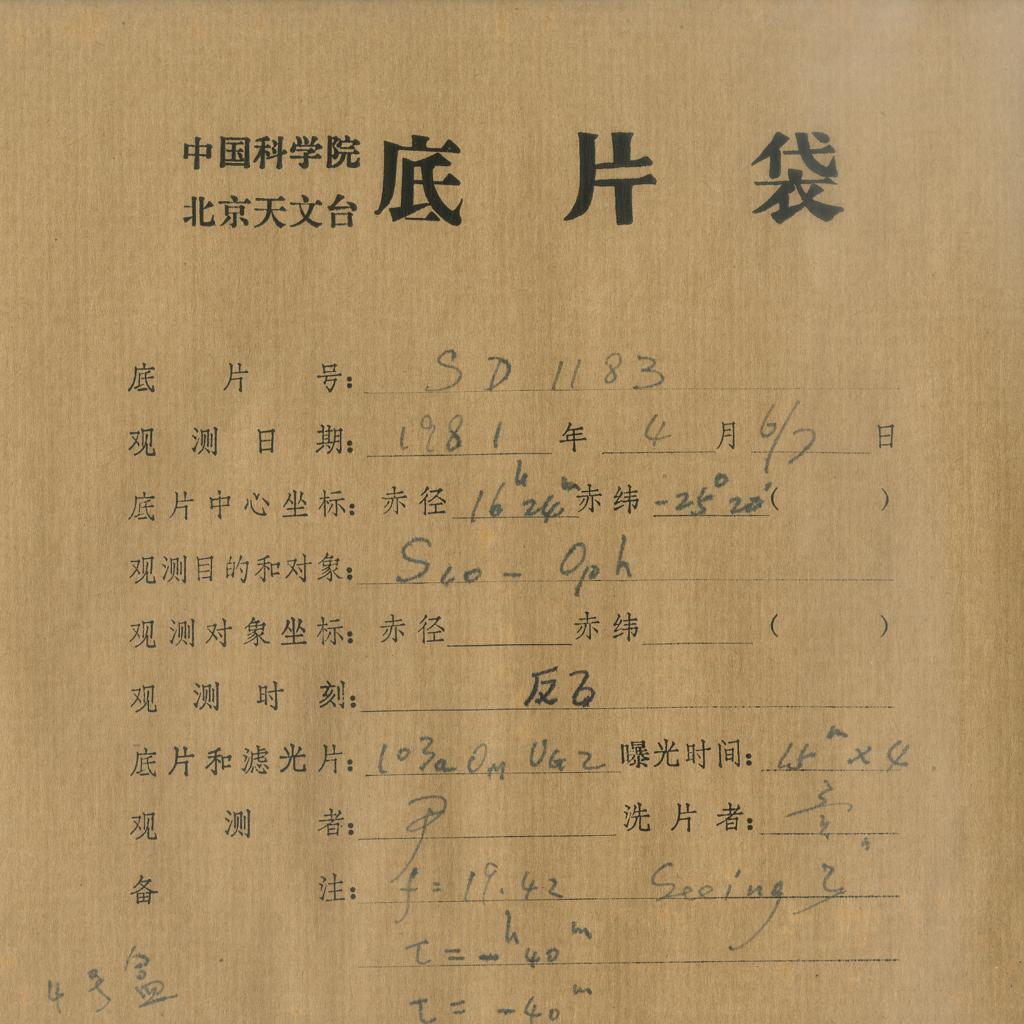 中国科学院
北京天文台
底片袋
底片号: SD 1183
观测日期: 1981 年 4 月 6/7 日
底片中心坐标: 赤径 16h24m 赤纬 -25°22' ( )
观测目的和对象: Sco - Oph
观测对象坐标: 赤径 赤纬 ( )
观测时刻: 反面
底片和滤光片: 103aOM UG2 曝光时间: 15m×4
观测者: 尹 洗片者:
备注: f=19.42 Seeing 3
t = -h40m
t = -40m
4号盒